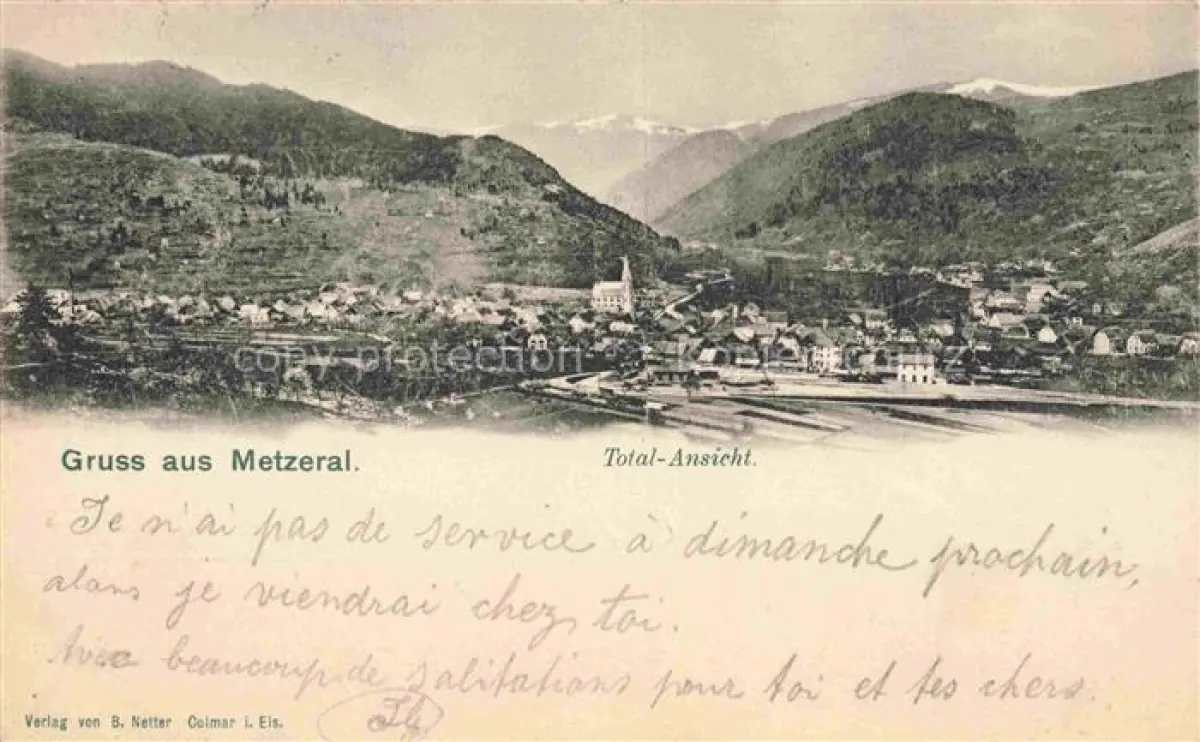 copy-protection Koenig und Klenz
Gruss aus Metzeral.
Total-Ansicht.
Je n'ai pas de service à dimanche prochain,
alors je viendrai chez toi.
Avec beaucoup de salitations pour toi et tes chers.
Verlag von B. Netter Colmar i. Els.